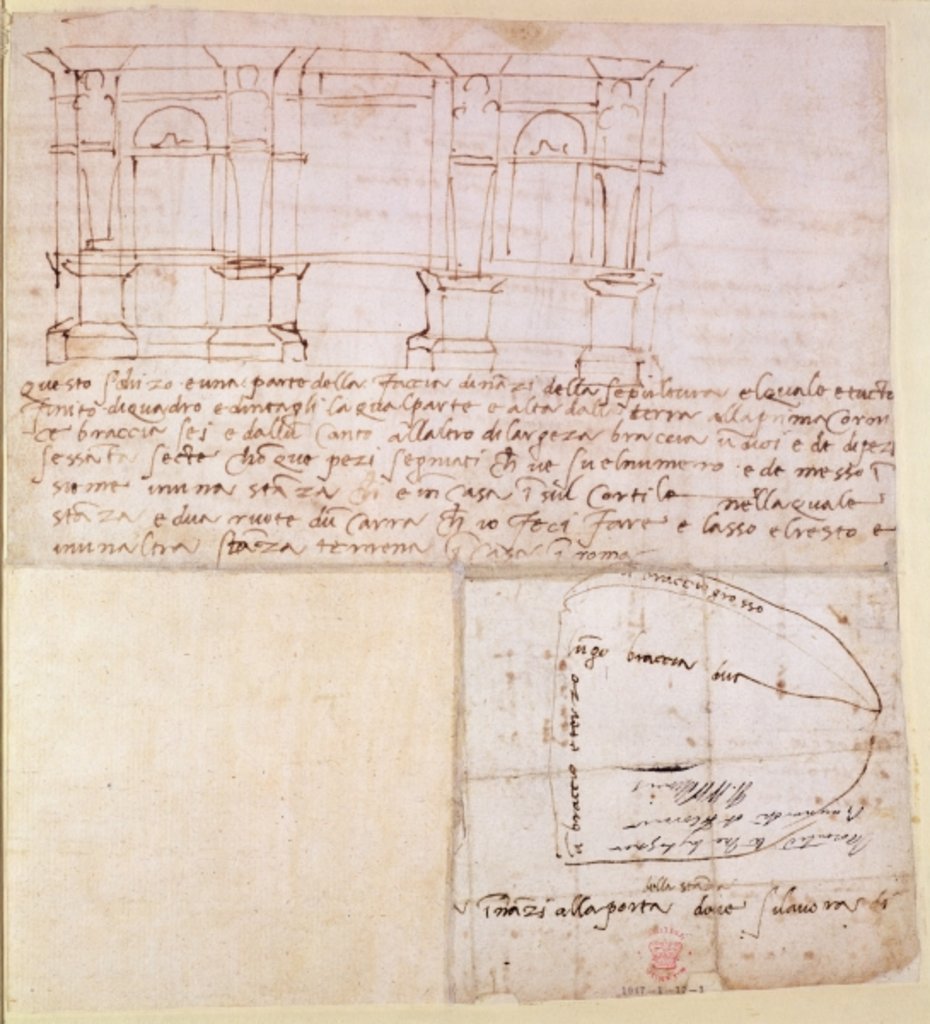 questo schizo e una parte della faccia dināzi della sepultura el quale e tucto
finito di quadro e d intagli la qual parte e alta dalla terra alla prima corni
ce braccia sei e dallū canto allaltro di largeza braccia ūdici e e de di pezi
sessāta secte choque pezi segniati chōme sue numero e de messo ī
sieme inuna stāza chi e in casa ī sul cortile nella quale
stāza e dua ruote dū carro ch io feci fare e lasso el resto e
inunaltra stāza terrena ī casa ī roma
ū braccio grosso
ūgo braccia dua
ū braccio e terzo
della stāza
īnāzi alla porta dove si lavora di
1947-1-17-1